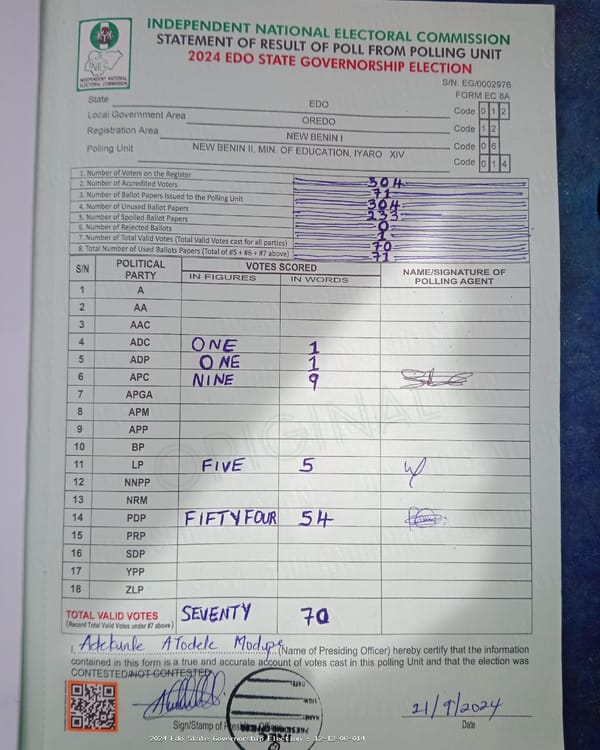 INDEPENDENT NATIONAL ELECTORAL COMMISSION
STATEMENT OF RESULT OF POLL FROM POLLING UNIT
2024 EDO STATE GOVERNORSHIP ELECTION
INDEPENDENT NATIONAL ELECTORAL COMMISSION
S/N: EG/0002976
FORM EC 8A
State EDO Code 0 1 2
Local Government Area OREDO Code 1 2
Registration Area NEW BENIN I Code 0 6
Polling Unit NEW BENIN II, MIN. OF EDUCATION, IYARO XIV Code 0 1 4
1. Number of Voters on the Register 304
2. Number of Accredited Voters 71
3. Number of Ballot Papers Issued to the Polling Unit 304
4. Number of Unused Ballot Papers 233
5. Number of Spoiled Ballot Papers 0
6. Number of Rejected Ballots 1
7. Number of Total Valid Votes (Total Valid Votes cast for all parties) 70
8. Total Number of Used Ballots Papers (Total of #5 + #6 + #7 above) 71
S/N POLITICAL PARTY VOTES SCORED NAME/SIGNATURE OF POLLING AGENT
IN FIGURES IN WORDS
1 A
2 AA
3 AAC
4 ADC ONE 1
5 ADP ONE 1
6 APC NINE 9
7 APGA
8 APM
9 APP
10 BP
11 LP FIVE 5
12 NNPP
13 NRM
14 PDP FIFTYFOUR 54
15 PRP
16 SDP
17 YPP
18 ZLP
ORIGINAL
TOTAL VALID VOTES SEVENTY 70
(Record Total Valid Votes under #7 above)
I, Adekunle Ayodele Modupe (Name of Presiding Officer) hereby certify that the information
contained in this form is a true and accurate account of votes cast in this polling Unit and that the election was
CONTESTED/NOT CONTESTED.
21/9/2024
Sign/Stamp of Date
DATE
SIGN
NAME
2024 Edo State Governorship Election - 12-12-06-014